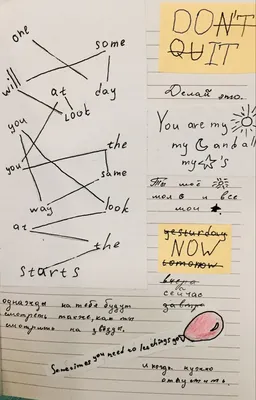 one
some
will
at
day
look
you
the
you
same
way
look
at
the
starts
DON'T
QUIT
Делай это.
You are my
my and all
my 's
Ты моё
моя и все
мои
yesturday
NOW
tomorrow
вчера
сейчас
завтра
однажды на тебя будут
смотреть также, как ты
смотришь на звёзды.
Sometimes you need to
иногда нужно
отпустить.